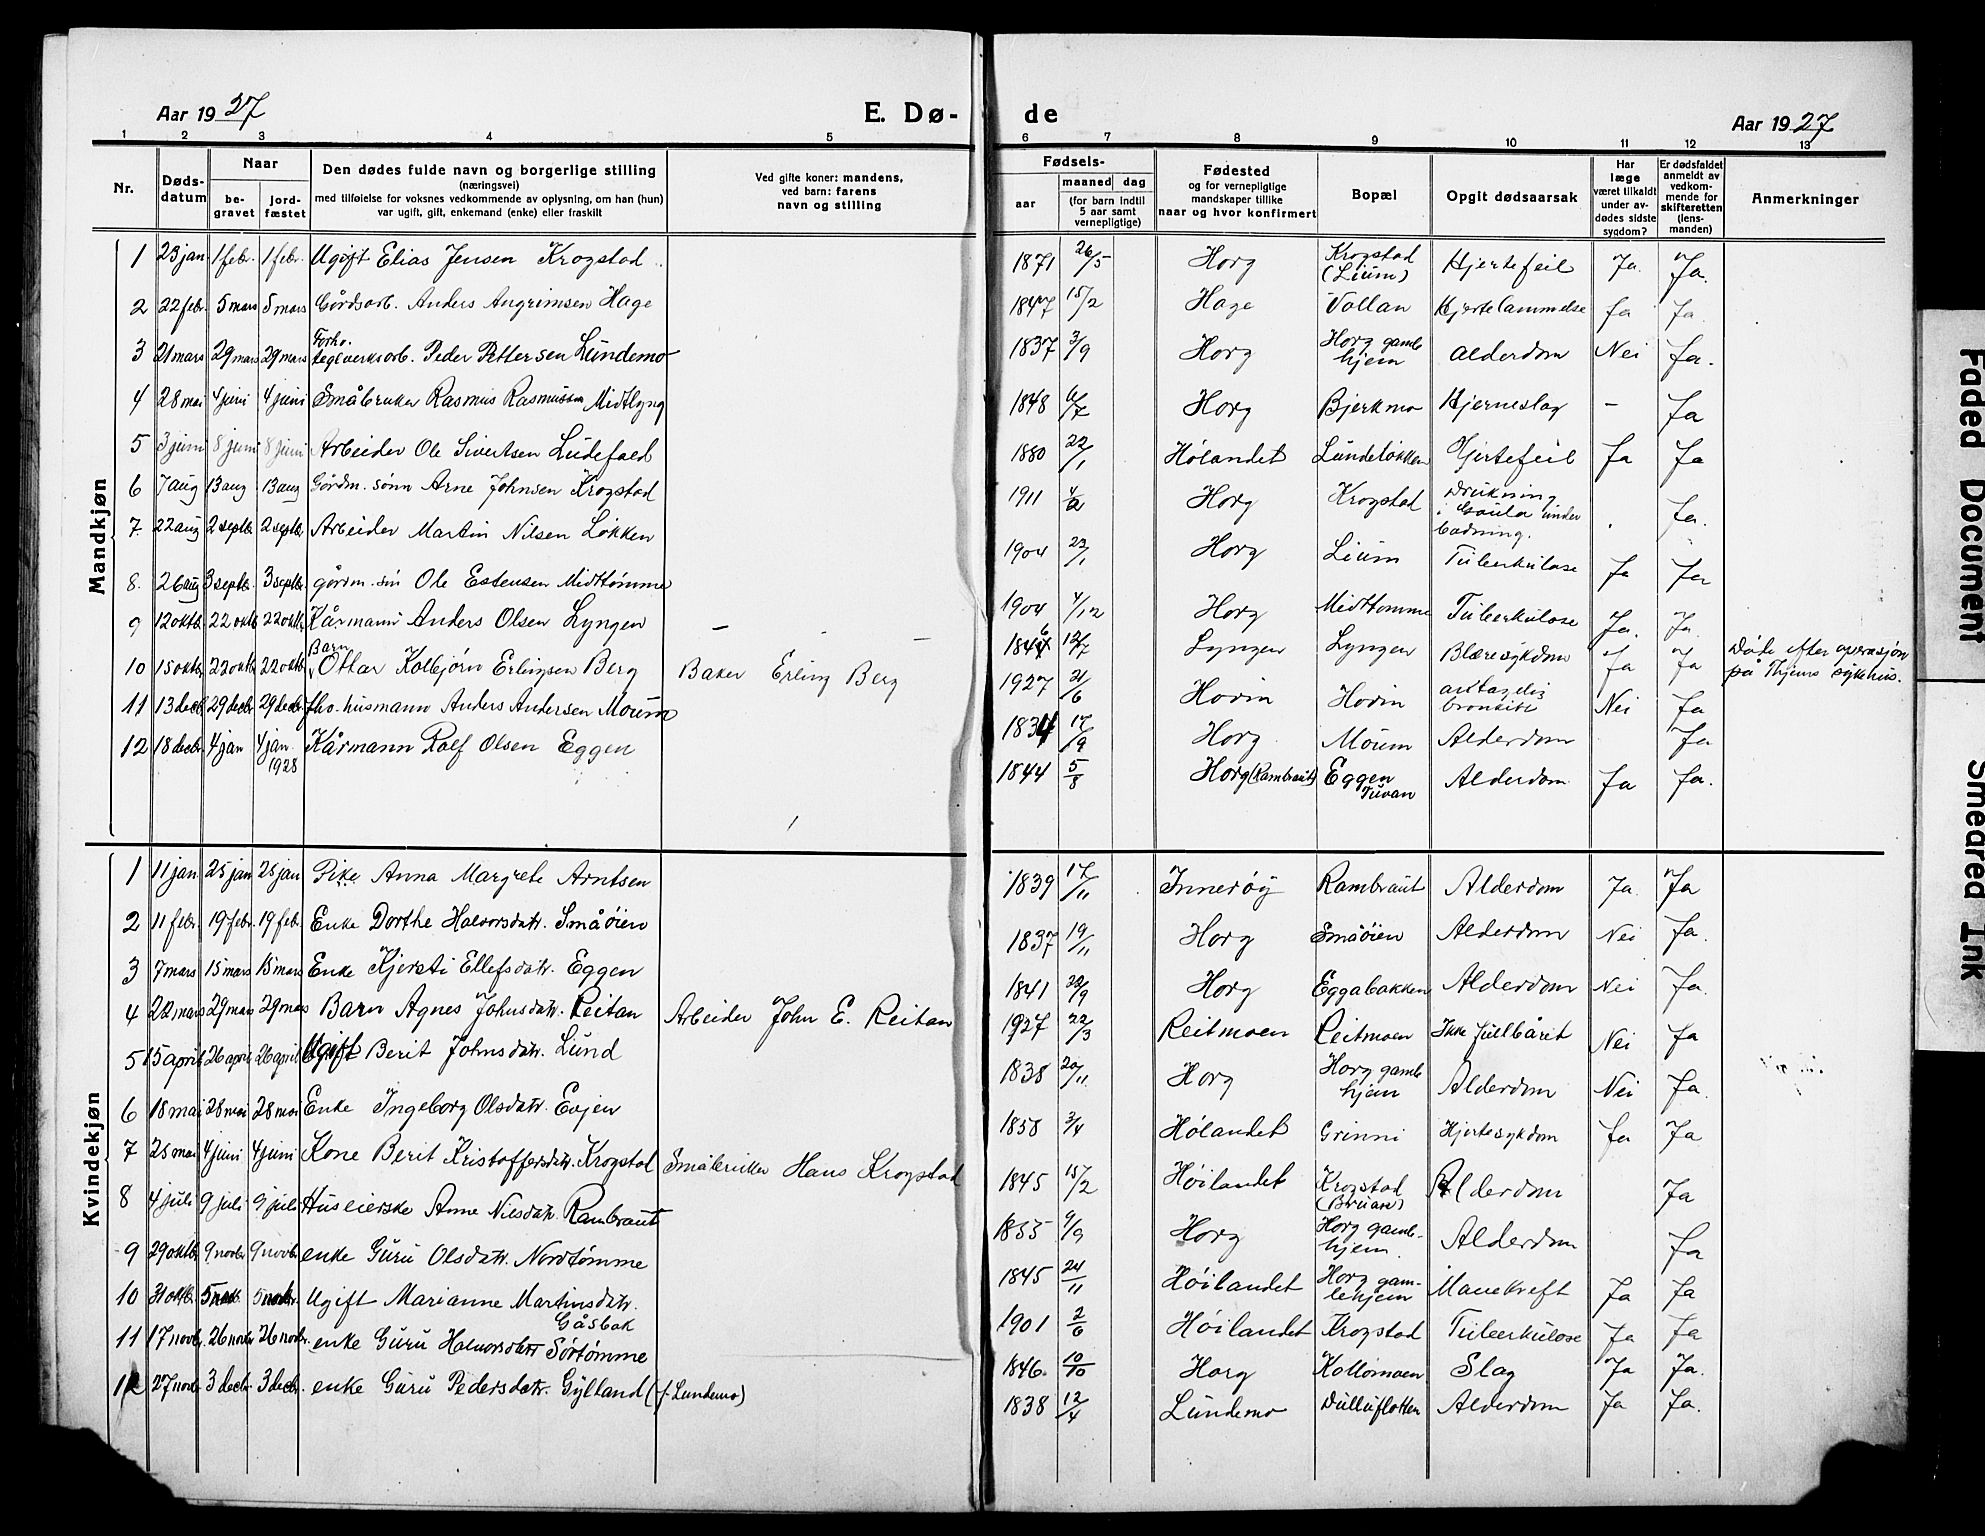 Aar 1927 E. Dø- de Aar 1927
1 2 3 4 5 6 7 8 9 10 11 12 13
Nr. Dødsdatum Naar begravet jordfæstet
Den dødes fulde navn og borgerlige stilling
(næringsvei)
med tilføielse for voksnes vedkommende av oplysning, om han (hun)
var ugift, gift, enkemand (enke) eller fraskilt
Ved gifte koner: mandens,
ved barn: farens
navn og stilling
Fødsels-
aar maaned dag
(for barn indtil
5 aar samt
vernepligtige)
Fødested
og for vernepligtige
mandskaper tillike
naar og hvor konfirmert
Bopæl
Opgit dødsaarsak
Har
læge
været tilkaldt
under av-
dødes sidste
sygdom?
Er dødsfaldet
anmeldt av
vedkom-
mende for
skifteretten
(lens-
manden)
Anmerkninger
Mandkjøn
1 23 jan 1 febr. 1 febr. Ugift Elias Jensen Krogstad 1871 26/5 Horg Krogstad (Lium) Hjertefeil Ja. Ja.
2 22 febr 5 mars 5 mars Gårdsarb. Anders Angrimsen Hage 1847 15/2 Hage Vollan Hjertelammelse Ja Ja.
3 21 mars 29 mars 29 mars Forhv. teglverksarb. Peder Pettersen Lundemo 1837 3/9 Horg Horg gamlehjem Alderdom Nei Ja.
4 28 mai 4 juni 4 juni Småbruker Rasmus Rasmussen Midtlyng 1848 6/7 Horg Bjerkmo Hjerneslag - Ja
5 3 juni 8 juni 8 juni Arbeider Ole Sivertsen Ludefald 1880 22/1 Hølandet Lundeløkken Hjertefeil Ja Ja
6 7 aug 13 aug 13 aug Gårdm. sønn Arne Johnsen Krogstad 1911 4/2 Horg Krogstad Drukning i Gaula under badning. Ja.
7 22 aug 2 septbr 2 septbr Arbeider Martin Nilsen Løkken 1904 23/1 Horg Lium Tuberkulose Ja Ja
8. 26 aug 3 septbr. 3 septbr gårdm. søn Ole Estensen Midttømme 1904 4/12 Horg Midttømme Tuberkulose Ja. Ja.
9 12 oktbr. 22 oktbr 22 oktbr Kårmann Anders Olsen Lyngen - - 1846 12/7 Lyngen Lyngen Blæresykdom Ja Ja Døde efter operasjon på Thjems sykehus.
10 15 oktbr. 22 oktbr 22 oktbr Barn Ottar Kolbjørn Erlingsen Berg Baker Erling Berg 1927 21/6 Hovin Hovin antagelig bronkitt Nei Ja
11 13 decbr 29 decbr 29 decbr fho. husmann Anders Andersen Moum 1834 17/9 Horg Moum Alderdom Ja
12 18 decbr 4 jan 4 jan 1928 Kårmann Rolf Olsen Eggen 1844 5/8 Horg (Rambraut) Eggen Tuvan Alderdom Ja Ja.
Kvindekjøn
1 11 jan 25 jan 25 jan Pike Anna Margrete Arntsen 1839 17/11 Innerøy Rambraut Alderdom Ja. Ja
2 11 febr. 19 febr. 19 febr Enke Dorthe Halvorsdatr. Småøien 1837 19/11 Horg Småøien Alderdom Nei Ja.
3 7 mars 15 mars 15 mars Enke Kjersti Ellefsdatr. Eggen 1841 22/9 Horg Eggabakken Alderdom Nei Ja.
4 22 mars 29 mars 29 mars Barn Agnes Johnsdatr. Reitan Arbeider John E. Reitan 1927 22/3 Reitmoen Reitmoen Ikke fullbåret Nei Ja
5 15 april 26 april 26 april Ugift Berit Johnsdatr. Lund 1838 20/11 Horg Horg gamlehjem Alderdom Nei Ja.
6 18 mai 28 mai 28 mai Enke Ingeborg Olsdatr. Evjen 1858 3/4 Hølandet Grinni Hjertesykdom Ja Ja
7 25 mai 4 juni 4 juni Kone Berit Kristoffersdatr. Krogstad Småbruker Hans Krogstad 1845 15/2 Høilandet Krogstad (Bruare) Alderdom Ja
8 4 juli 9 juli 9 juli Huseierske Anne Nilsdatr. Rambraut 1855 9/9 Horg Horg gamlehjem. Alderdom Ja
9 29 oktbr 9 novbr. 9 novbr. enke Guru Olsdatr. Nordtømme 1845 24/11 Høilandet Horg gamlehjem Mavekreft Ja Ja
10 31 oktbr. 5 novbr. 5 novbr. Ugift Marianne Martinsdatr. Gåsbak 1901 2/6 Høilandet Krogstad Tuberkulose Ja Ja
11 17 novbr. 26 novbr 26 novbr. enke Guru Halvorsdatr Sørtømme 1846. 10/10 Horg Kollomoen Slag Ja Ja.
12 27 novbr 3 decbr 3 decbr. enke Guru Pedersdatr. Gylland (f. Lundemo) 1838 12/4 Lundemo Dulluflotten Alderdom Ja Ja.
Faded Document
Smeared Ink